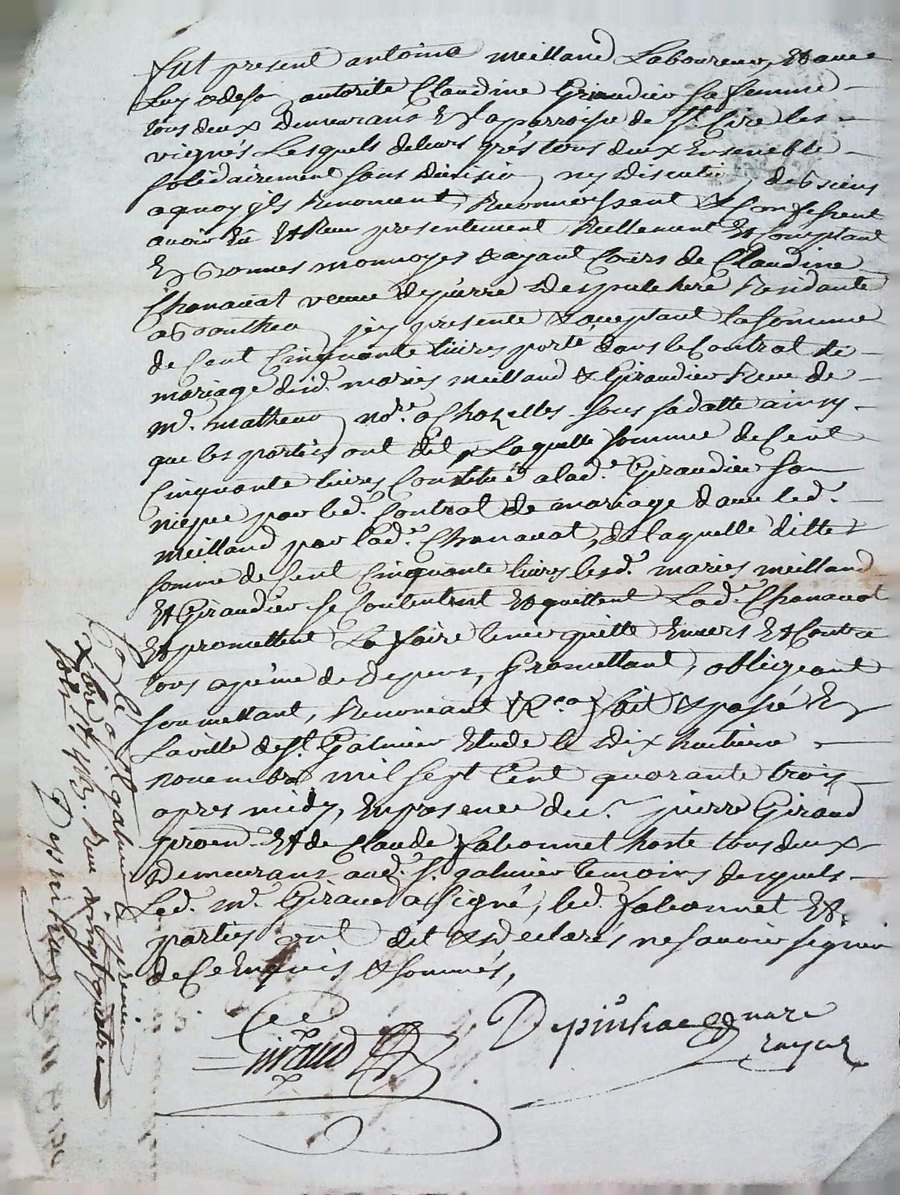 Fut present antoine meilland Laboureur, Et avec
Luy & de son autorité Claudine Giraudier sa femme
tous deux Demeurans En la parroisse de St Cire les
vignes Lesquels de leurs grés tous deux Ensemble
solidairement sans Division ny Discution de biens
a quoy ils Renoncent, Reconnoissent & Confessent
avoir Eu Et Receu presentement Reellement Et Comptant
En bonnes monnoyes & ayant Cours de Claudine
Chanavat veuve de pierre Desputhere Rendante
a bonthen jcy presente & aceptant la somme
de Cent Cinquante livres porté dans le Contrat de
mariage desd. mariés meilland & Giraudier Receu de
me. matheuo nore. a Chazelles sous sa datte ainsy
que les parties ont dit, Laquelle somme de Cent
Cinquante livres Constitué a lad. Giraudier sa
niepce par led. Contrat de mariage avec led.
meilland par lad. Chanavat, de laquelle ditte
somme de Cent Cinquante livres lesd. mariés meilland
Et Giraudier se Contentent Et quittent Lad. Chanavat
Et promettent La faire tenir quitte Envers Et Contre
tous a peine de Depens, promettant, obligeant
soumettant, Renonçant &ca fait & passé En
La ville de St. Galmier Etude le Dix huitieme
novembre mil sept Cent quarante trois
apres midy, En presence de sr. pierre Giraud
praen. Et de Claude fabonnet hoste tous deux
Demeurans aud. St. galmier temoins desquels
Led. mr. Giraud a signé, led. fabonnet Et
parties ont dit & declarés ne savoir signer
de Ce Enquis & sommés,
Giraud
Depinhac nore
royal
Clé a St galmier le premier
xbre 1743. Receu vingt quatre
sols
Depinhac